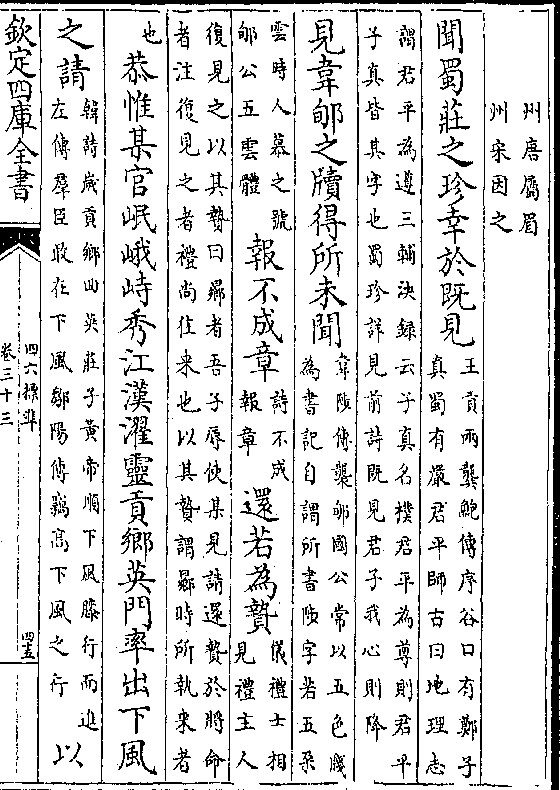 州唐屬眉
州宋因之
聞蜀莊之珍幸於既見
王貢兩龔鮑傳序谷口有鄭子
真蜀有嚴君平師古曰地理志
謂君平為遵三輔決錄云子真名樸君平為尊則君平
子真皆其字也蜀珍詳見前詩既見君子我心則降
見韋郇之牘得所未聞
韋陟傳襲郇國公常以五色牋
為書記自謂所書陟字若五朶
雲時人慕之號
郇公五雲體
報不成章
詩不成
報章
還若為贄
儀禮士相
見禮主人
復見之以其贄曰曏者吾子辱使某見請還贄於將命
者注復見之者禮尚往来也以其贄謂曏時所執来者
也
恭惟某官岷峨峙秀江漢濯靈貢鄉英門率出下風
之請
韓詩歳貢鄉曲英莊子黃帝順下風膝行而進
左傳羣臣敢在下風鄒陽傳竊高下風之行
以
欽定四庫全書
四六標準
卷三十三